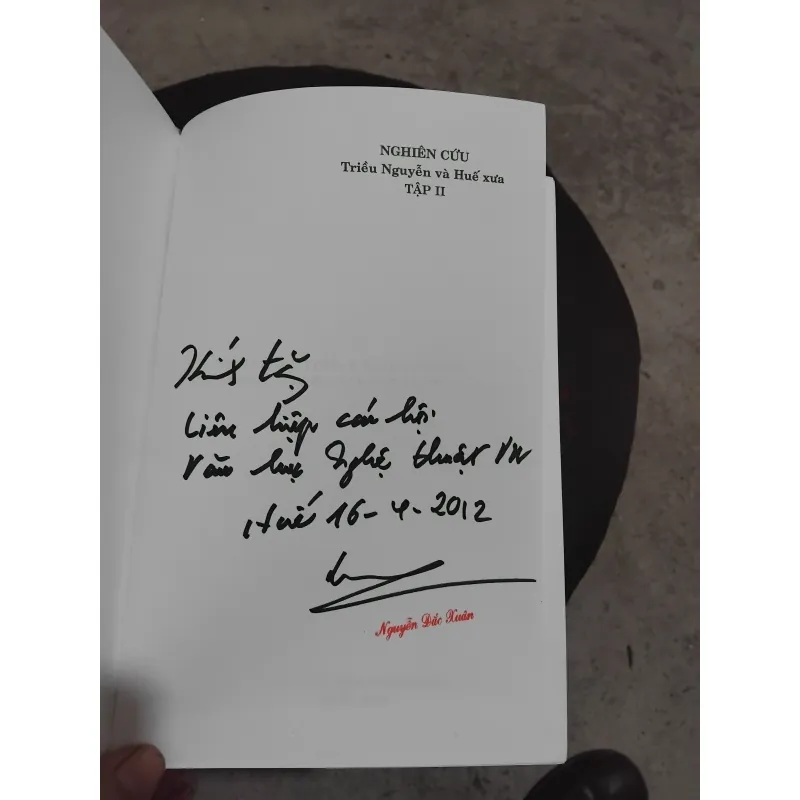 NGHIÊN CỨU
Triều Nguyễn và Huế xưa
TẬP II
Kính tặng
Liên hiệp các hội
Văn học Nghệ thuật VN
Huế 16-4-2012
Nguyễn Đắc Xuân